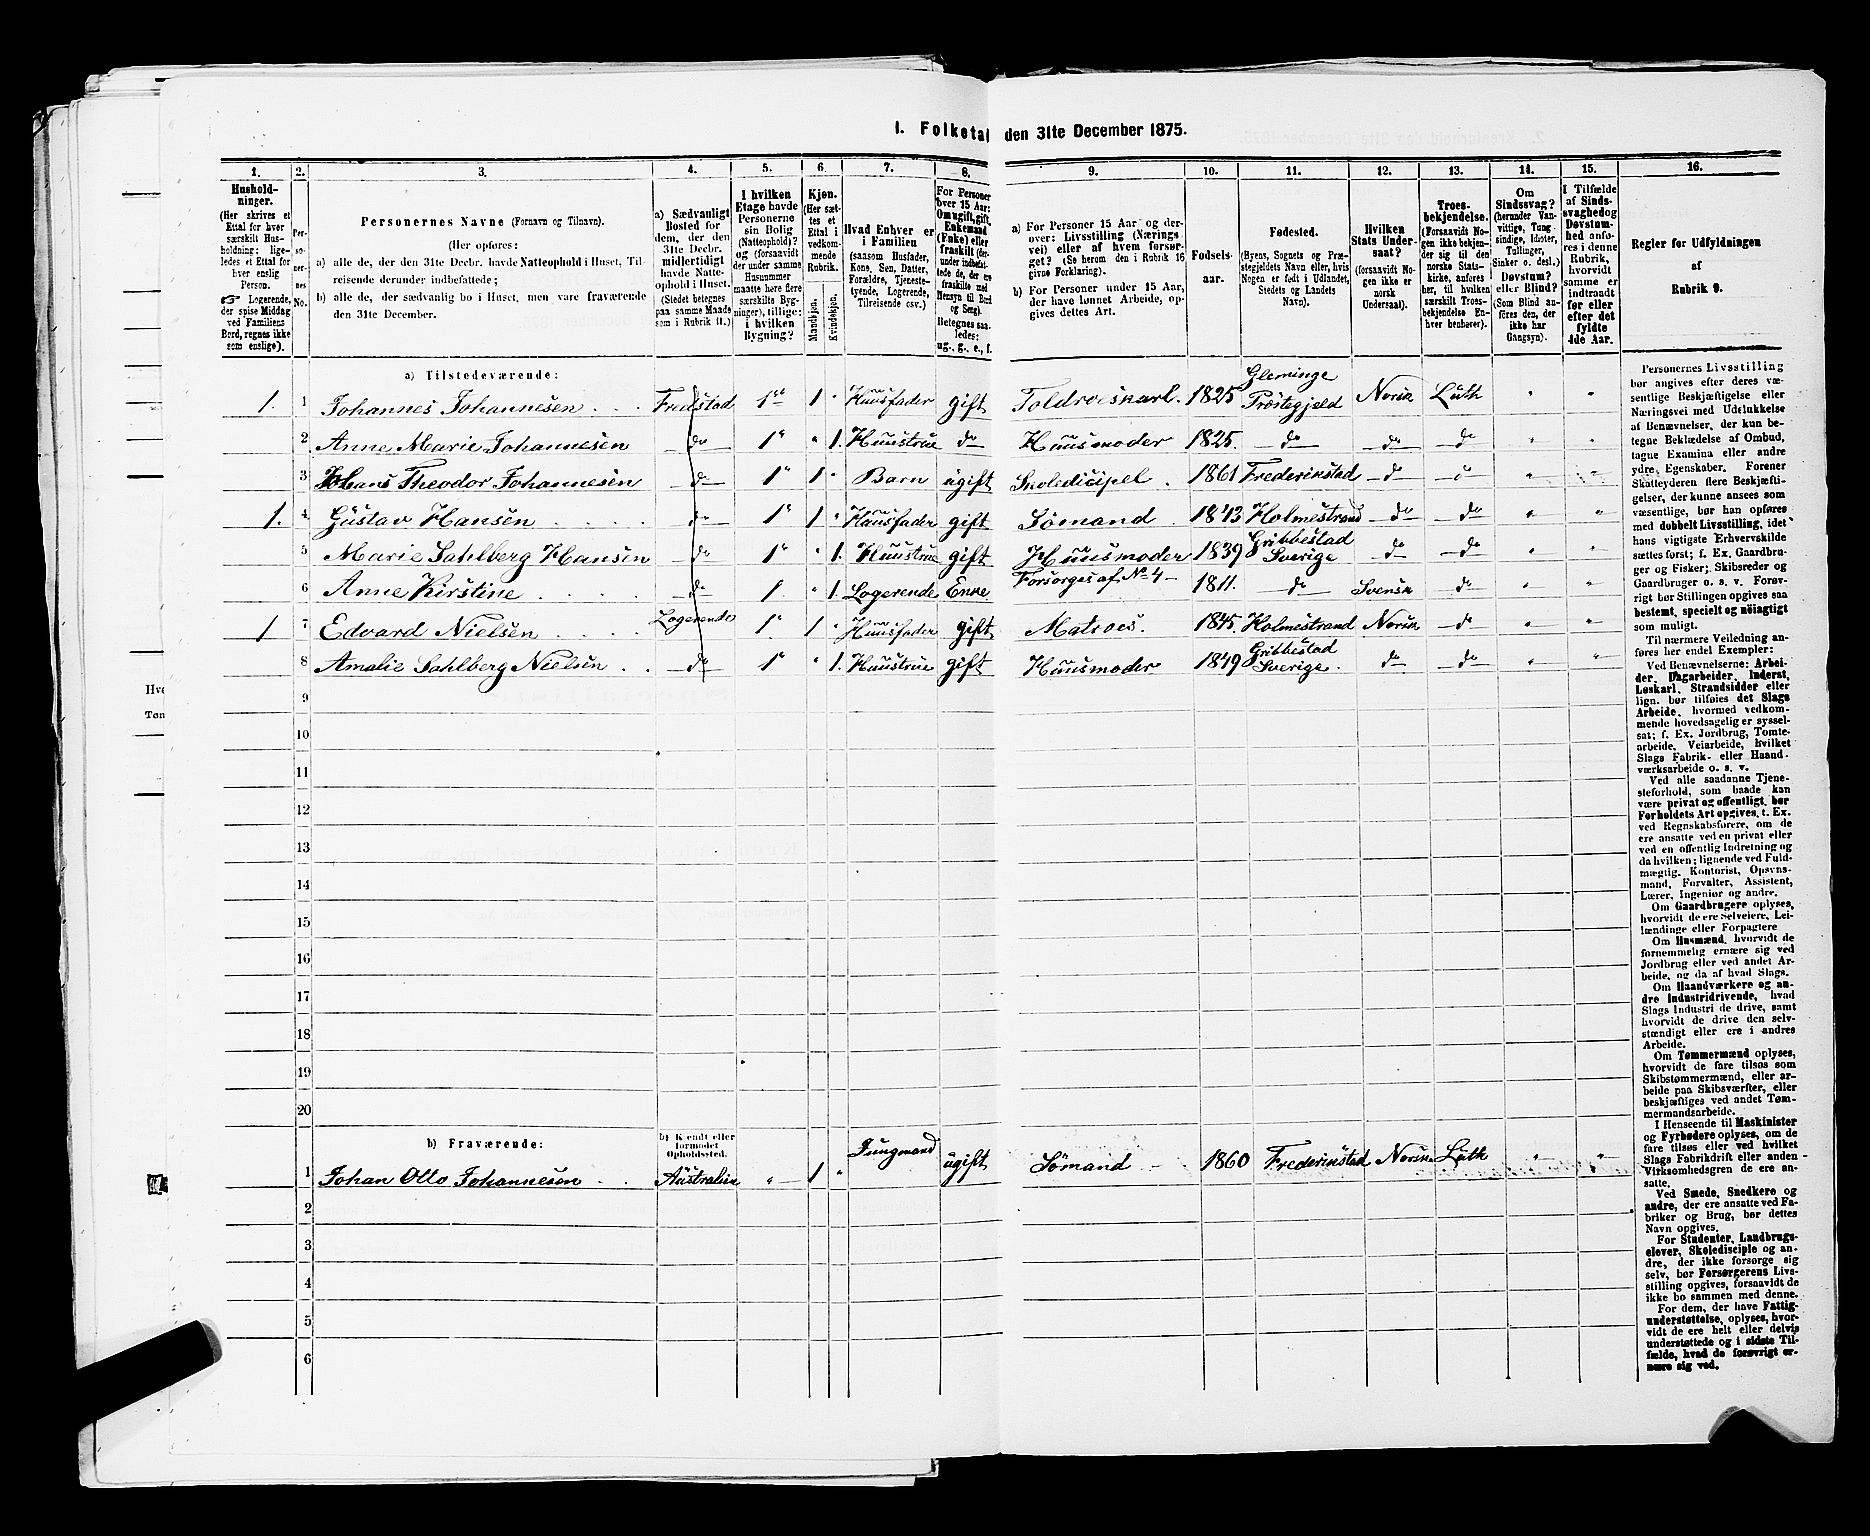 1. Folketal den 31te December 1875.
1. 2. 3. 4. 5. 6. 7. 8. 9. 10. 11. 12. 13. 14. 15. 16.
Hushold-
ninger.
(Her skrives et
Ettal for hver
særskilt Hus-
holdning; lige-
ledes et Ettal for
hver enslig
Person.
☞ Logerende,
der spise Middag
ved Familiens
Bord, regnes ikke
som enslige).
Per-
so-
ner-
nes
No.
Personernes Navne (Fornavn og Tilnavn).
(Her opføres:
a) alle de, der den 31te Decbr. havde Natteophold i Huset, Til-
reisende derunder indbefattede;
b) alle de, der sædvanlig bo i Huset, men vare fraværende
den 31te December.
a) Sædvanligt
Bosted for
dem, der den
31te Decbr.
midlertidigt
havde Natte-
ophold i Huset.
(Stedet betegnes
paa samme Maade
som i Rubrik 11.)
I hvilken
Etage havde
Personerne
sin Bolig
(Natteophold)?
og (forsaavidt
der under samme
Husnummer
maatte høre flere
særskilte Byg-
ninger), tillige:
i hvilken
Bygning?
Kjøn.
(Her sæt-
tes et
Ettal i
vedkom-
mende
Rubrik.
Mandkjøn.
Kvindekjøn.
Hvad Enhver er
i Familien
(saasom Husfader,
Kone, Søn, Datter,
Forældre, Tjeneste-
tyende, Logerende,
Tilreisende osv.)
For Personer
over 15 Aar:
Om ugift, gift,
Enkemand
(Enke) eller
fraskilt (der-
under indbefat-
tede de, der ere
fraskilte med
Hensyn til Bord
og Seng).
Betegnes saa-
ledes:
ug., g., e., f.
a) For Personer 15 Aar og der-
over: Livsstilling (Nærings-
vei) eller af hvem forsør-
get? (Se herom den i Rubrik 16
givne Forklaring).
b) For Personer under 15 Aar,
der have lønnet Arbeide, op-
gives dettes Art.
Fødsels-
aar.
Fødested.
(Byens, Sognets og Præ-
stegjeldets Navn eller, hvis
Nogen er født i Udlandet,
Stedets og Landets
Navn).
Hvilken
Stats Under-
saat?
(forsaavidt No-
gen ikke er
norsk
Undersaat).
Troes-
bekjendelse.
(Forsaavidt No-
gen ikke bekjen-
der sig til den
norske Stats-
kirke, anføres
her, til hvilken
særskilt Troes-
bekjendelse En-
hver henhører).
Om
Sindssvag?
(herunder Van-
vittige, Tung-
sindige, Idioter,
Tullinger,
Sinker o. desl.)
Døvstum?
eller Blind?
(Som Blind an-
føres den, der
ikke har
Gangsyn).
I Tilfælde
af Sinds-
svaghed og
Døvstum-
hed anfø-
res i denne
Rubrik,
hvorvidt
samme er
indtraadt
før eller
efter det
fyldte
4de Aar.
Regler for Udfyldningen
af
Rubrik 9.
a) Tilstedeværende:
1. 1 Johannes Johannesen Fredstad 1ste 1 " Huusfader gift Toldroeskarl. 1825 Gleminge Præstegjeld Norsk Luth " "
2 Anne Marie Johannesen do 1" " 1. Huustrue do Huusmoder 1825. do do do " "
3 Hans Theodor Johannesen do 1" 1 " Barn ugift Skolediscipel 1861 Frederikstad do " "
1. 4 Gustav Hansen do 1" 1 " Huusfader gift Sømand 1843 Holmestrand do do " "
5 Marie Sahlberg Hansen do 1" " 1. Huustrue gift Huusmoder 1839 Gribbestad Sverige do do " "
6 Anne Kirstine do 1 " 1. Logerende Enke Forsørges af No 4 1811. do Svensk do " "
1 7 Edvard Nielsen Logerende 1" 1 " Huusfader gift Matroes. 1845. Holmestrand Norsk do " "
8 Amalie Sahlberg Nielsen do 1" " 1. Huustrue gift Huusmoder 1849 Gribbestad Sverige. do do " "
9
10
11
12
13
14
15
16
17
18
19
20
b) Fraværende:
b) Kjendt eller
formodet
Opholdssted.
1 Johan Otto Johannesen Australien " 1 " Jungmand ugift Sømand 1860 Frederikstad Norsk Luth " "
2
3
4
5
6
Personernes Livsstilling
bør angives efter deres væ-
sentlige Beskjæftigelse eller
Næringsvei med Udelukkelse
af Benævnelser, der kun be-
tegne Beklædelse af Ombud,
tagne Examina eller andre
ydre Egenskaber. Forener
Skatteyderen flere Beskjæfti-
gelser, der kunne ansees som
væsentlige, bør han opføres
med dobbelt Livsstilling, idet
hans vigtigste Erhvervskilde
sættes først; f. Ex. Gaardbru-
ger og Fisker; Skibsreder og
Gaardbruger o. s. v. Forøv-
rigt bør Stillingen opgives saa
bestemt, specielt og nøiagtigt
som muligt.
Til nærmere Veiledning an-
føres her endel Exempler:
Ved Benævnelserne: Arbei-
der, Dagarbeider, Inderst,
Løskarl, Strandsidder eller
lign. bør tilføies det Slags
Arbeide, hvormed vedkom-
mende hovedsagelig er syssel-
sat; f. Ex. Jordbrug, Tomte-
arbeide, Veiarbeide, hvilket
Slags Fabrik- eller Haand-
værksarbeide o. s. v.
Ved alle saadanne Tjene-
steforhold, som baade kan
være privat og offentligt, bør
Forholdets Art opgives, t. Ex.
ved Regnskabsførere, om de
ere ansatte ved en privat eller
ved en offentlig Indretning og
da hvilken; lignende ved Fuld-
mægtig, Kontorist, Opsyns-
mand, Forvalter, Assistent,
Lærer, Ingeniør og andre.
Om Gaardbrugere oplyses,
hvorvidt de ere Selveiere, Lei-
lændinge eller Forpagtere
Om Husmænd, hvorvidt de
fornemmelig ernære sig ved
Jordbrug eller ved andet Ar-
beide, og da af hvad Slags.
Om Haandværkere og an-
dre Industridrivende, hvad
Slags Industri de drive, samt
hvorvidt de drive den selv-
stændigt eller ere i andres
Arbeide.
Om Tømmermænd oplyses,
hvorvidt de fare tilsøs som
Skibstømmermænd, eller ar-
beide paa Skibsværfter, eller
beskjæftiges ved andet Tøm-
mermandsarbeide.
I Henseende til Maskinister
og Fyrbødere oplyses, om de
fare tilsøs eller ved hvilket
Slags Fabrikdrift eller anden
Virksomhedsgren de ere an-
satte.
Ved Smede, Snedkere og
andre, der ere ansatte ved Fa-
briker og Brug, bør dettes
Navn opgives.
For Studenter, Landbrugs-
elever, Skoledisciple og an-
dre, der ikke forsørge sig
selv, bør Forsørgerens Livs-
stilling opgives, forsaavidt de
ikke bo sammen med denne.
For dem, der have Fattig-
understøttelse, oplyses, hvor-
vidt de ere helt eller delvis
understøttede og i sidste Til-
fælde, hvad de forøvrigt er-
nære sig ved.